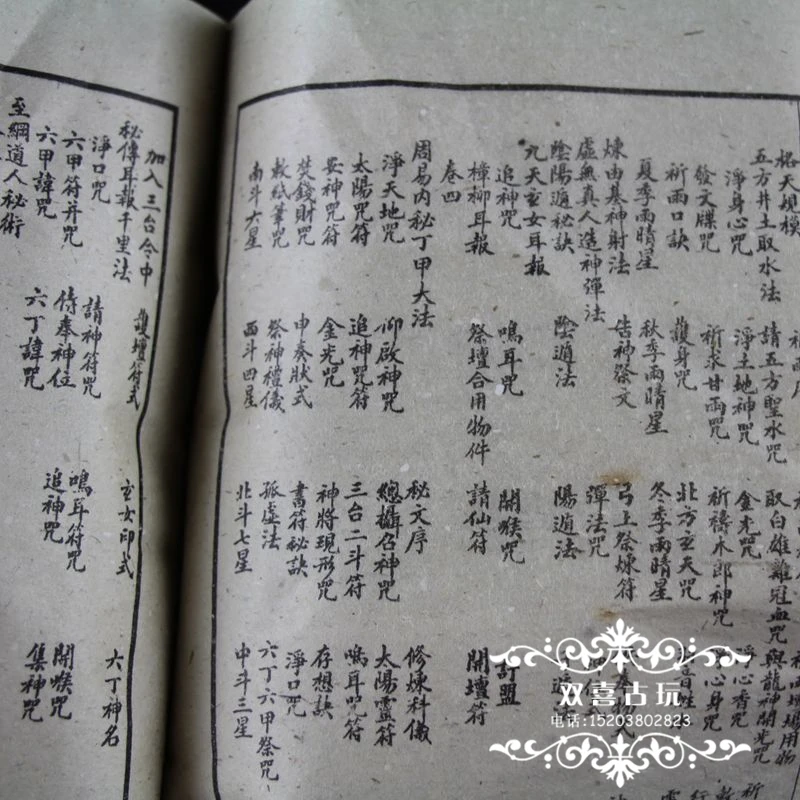 格天規模
五方井土取水法 請五方聖水咒 取白雄雞冠血咒 與龍神開光咒
淨身心咒 淨土地神咒 金光咒 淨心香咒
發文牒咒 祈求甘雨咒 祈禱木郎神咒 心身咒
祈雨口訣 護身咒 北方玄天咒
夏季雨晴星 秋季雨晴星 冬季雨晴星
煉由基神射法 告神祭文 弓上祭煉符
虛無真人造神彈法 彈法咒
陰陽遁秘訣 陰遁法 陽遁法
九天玄女耳報
追神咒 鳴耳咒 開喉咒 訂盟
樟柳耳報 祭壇合用物件 請仙符 開壇符
卷四
周易內秘丁甲大法 秘文序 修煉科儀
淨天地咒 仰啟神咒 總攝召神咒 太陽靈符
太陽咒符 追神咒符 三台二斗符 鳴耳咒符
安神咒符 金光咒 神將現形咒 存想訣
焚錢財咒 申奏狀式 書符秘訣 淨口咒
敕紙筆咒 祭神禮儀 孤虛法 六丁六甲祭咒
南斗六星 西斗四星 北斗七星 中斗三星
加入三台令中 護壇符式 玄女印式 六丁神名
秘傳耳報千里法
淨口咒 請神符咒 鳴耳符咒 開喉咒
六甲符并咒 侍奉神位 追神咒 集神咒
六甲諱咒 六丁諱咒
至綱道人秘術
双喜古玩
电话:15203802823